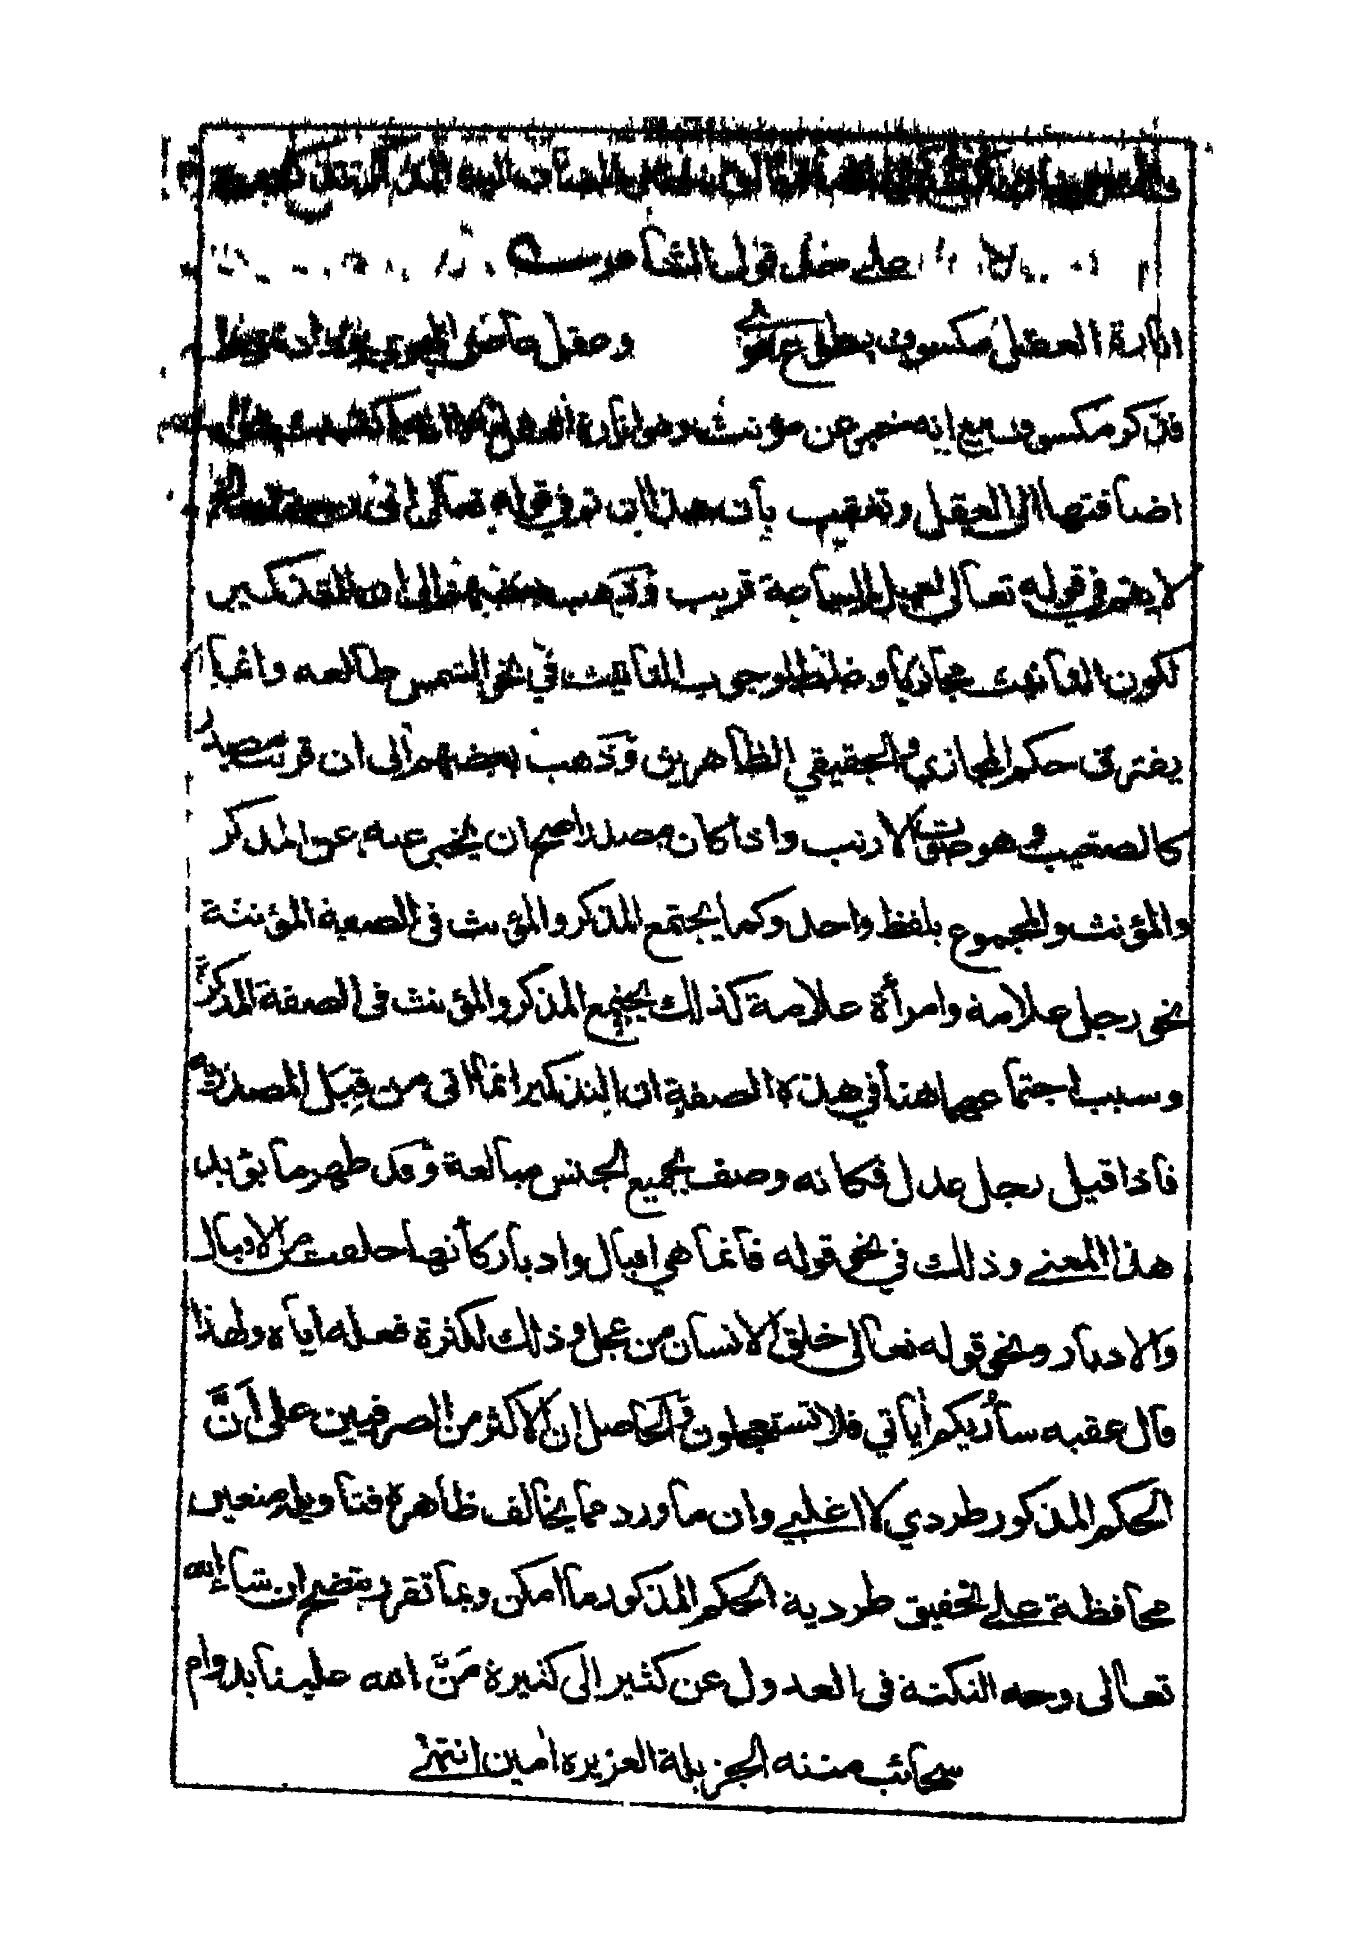 على حد قول الشاعر
انارة العقل مكسوف بطوع هوى وعقل عاصي الهوى يزداد تنويرا
فذكر مكسوف مع انه خبر عن مؤنث وهو انارة
اضافتها الى العقل وتعقب بأن هذا ان تم في قوله تعالى ان رحمة الله
لا يتم في قوله تعالى لعل الساعة قريب وذهب بعضهم الى ان التذكير
لكون التأنيث مجازيا وغلط لوجوب التأنيث في نحو الشمس طالعه وانما
يفترق حكم المجازي والحقيقي الظاهرين وذهب بعضهم الى ان قريب مصدر
كالصغيب وهو صوت الارنب واذا كان مصدرا صح ان يخبر عنه به عن المذكر
والمؤنث والمجموع بلفظ واحد وكما يجتمع المذكر والمؤنث في الصفة المؤنثة
نحو رجل علامة وامرأة علامة كذلك يجتمع المذكر والمؤنث في الصفة المذكرة
وسبب اجتماعهما هنا في هذه الصفة ان التذكير انما اتى من قبل المصدرية
فاذا قيل رجل عدل فكانه وصف بجميع الجنس مبالغة وقد ظهر ما يؤيد
هذا المعنى وذلك في نحو قوله فانما هي اقبال وادبار كأنها خلقت من الاقبال
والادبار ونحو قوله تعالى خلق الانسان من عجل وذلك لكثرة فعله اياه ولهذا
قال عقبه سأريكم آياتي فلا تستعجلون والحاصل ان الاكثر من الصرفيين على أنّ
الحكم المذكور طردي لا اغلبي وان ما ورد مما يخالف ظاهره فتأويله متعين
محافظة على تحقيق طردية الحكم المذكور ما امكن وبما تقرر يتضح ان شاء الله
تعالى وجه النكتة في العدول عن كثير الى كثيرة مَنَّ الله علينا بدوام
سحائب مننه الجزيلة العزيزة امين انتهى